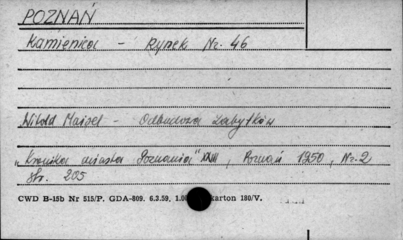 POZNAŃ
Kamienica - Rynek Nr. 46
Witold Maisel - Odbudowa zabytków
"Kronika miasta Poznania" XXIII, Poznań 1950, Nr. 2
str. 205
CWD B-15b Nr 515/P. GDA-809. 6.3.59. 1.00 karton 180/V.